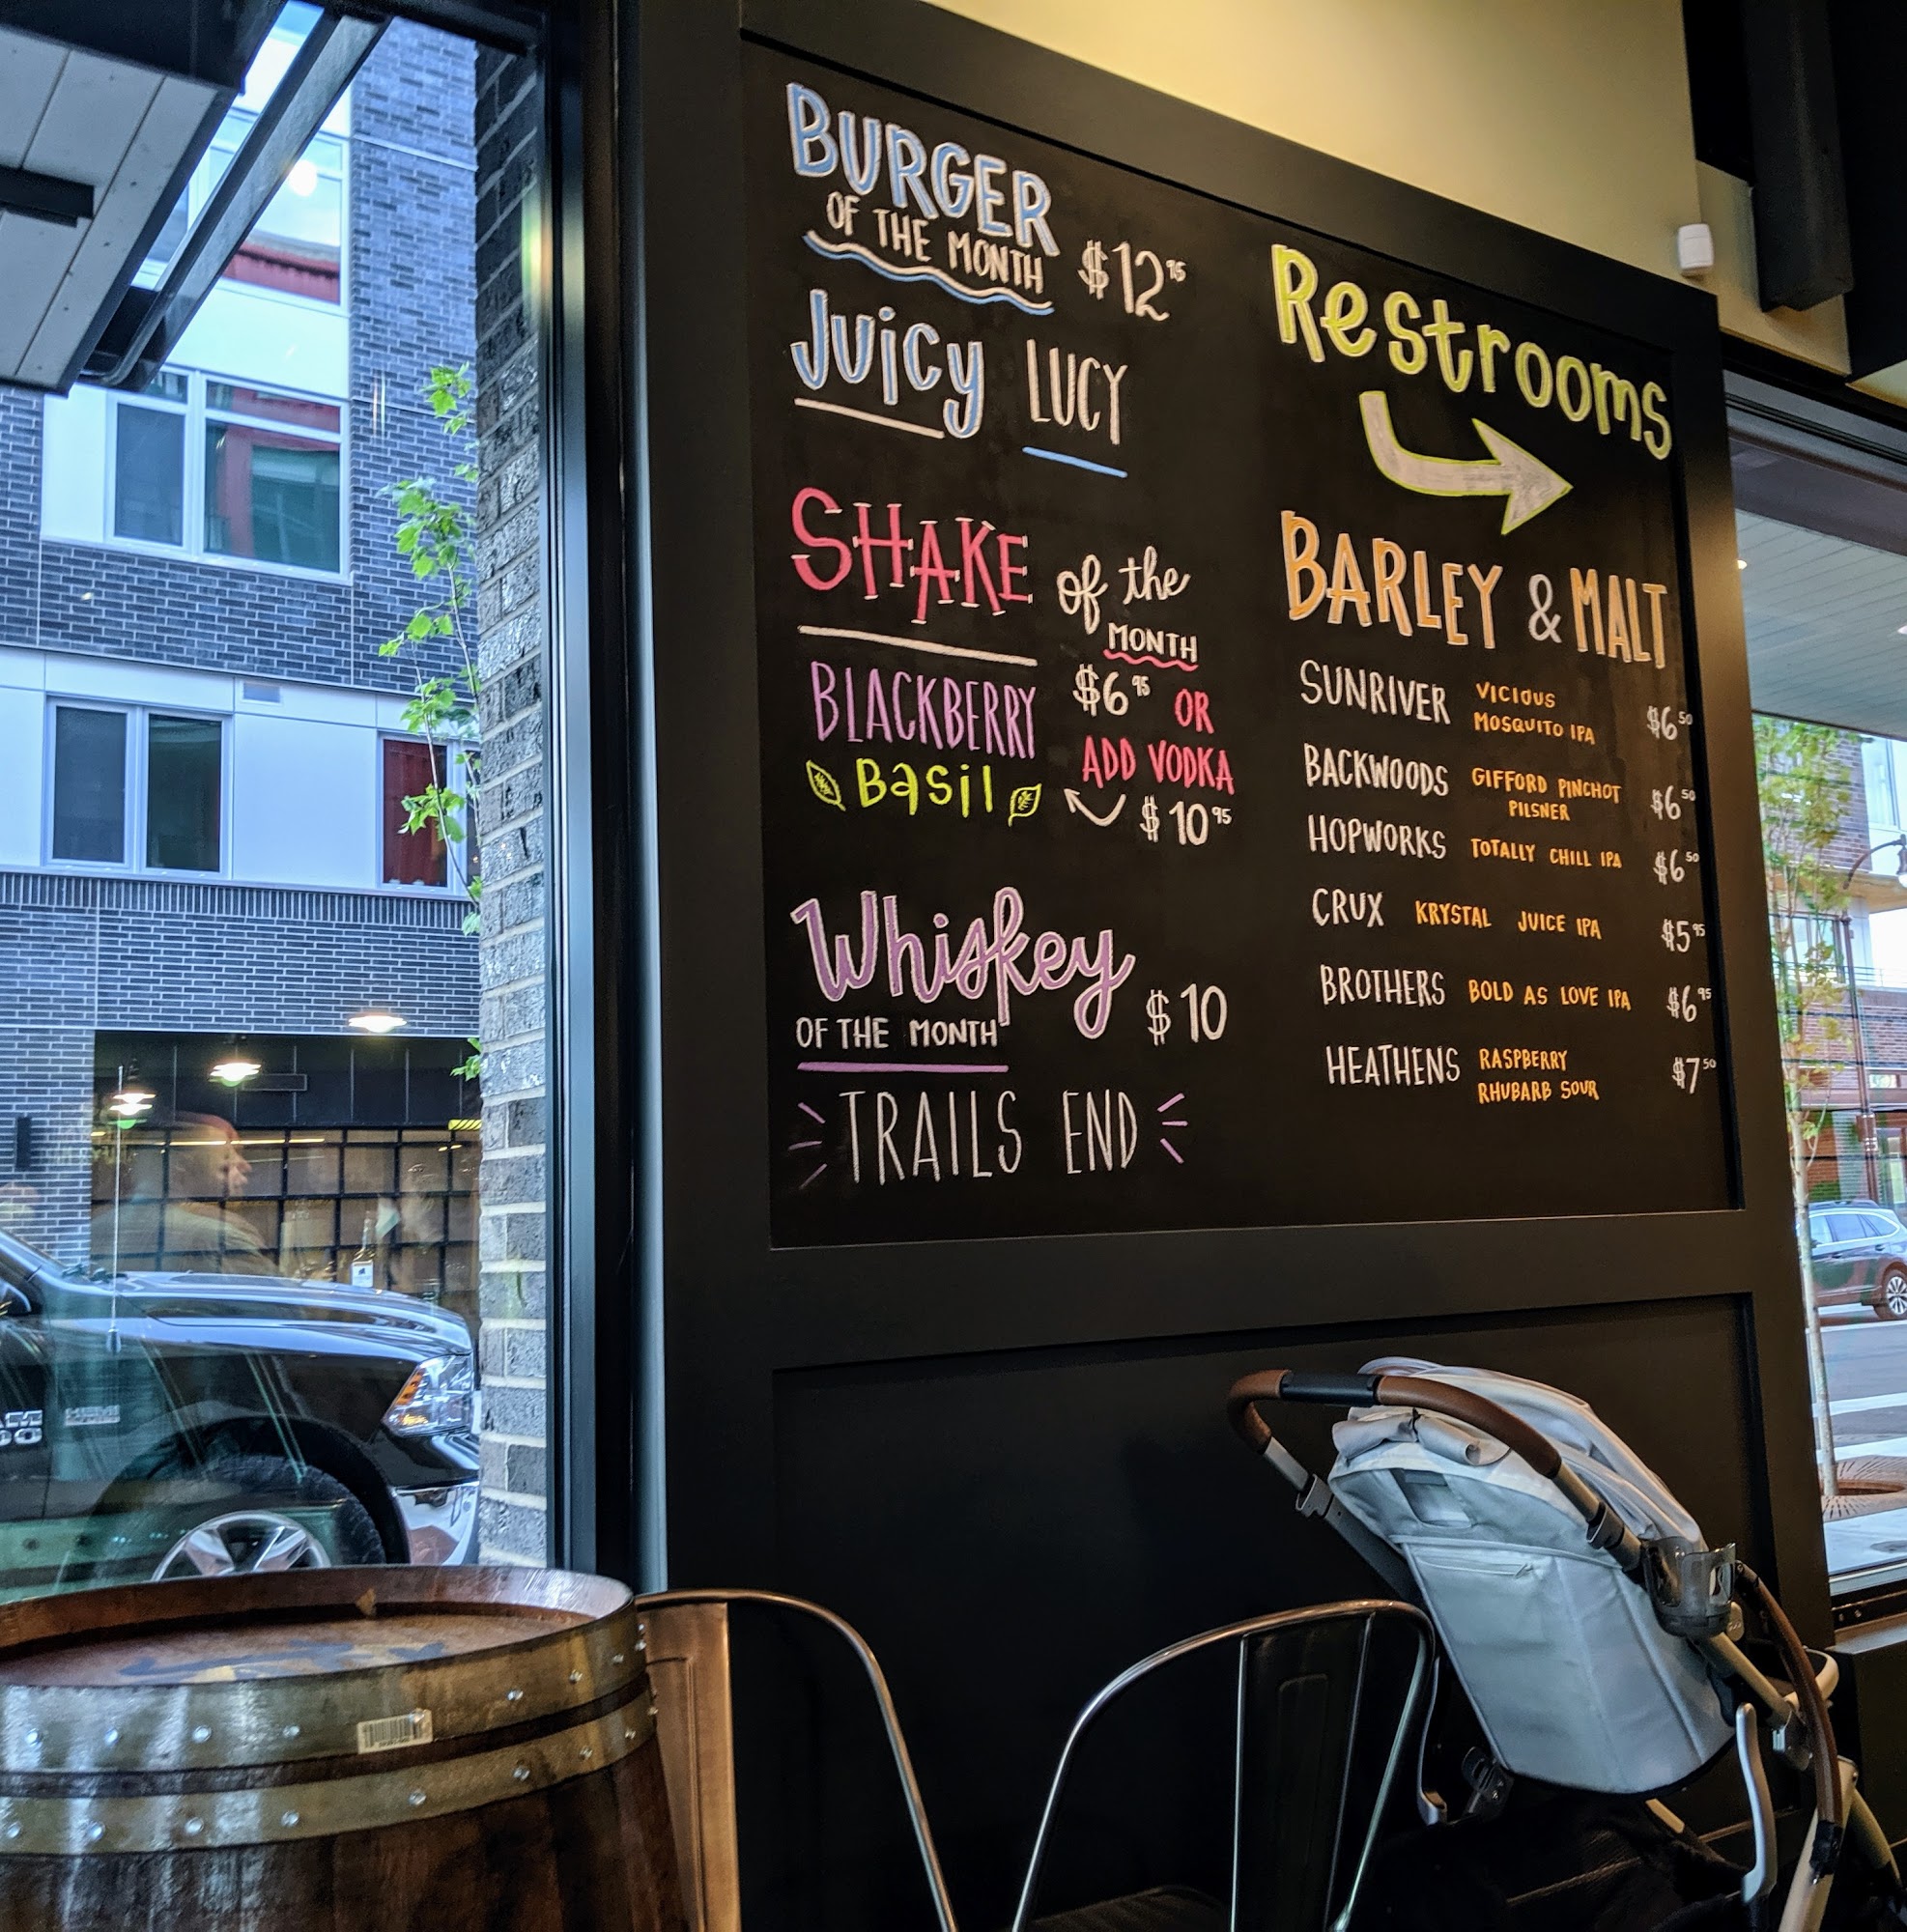 BURGER
OF THE MONTH $12.95
Juicy LUCY
SHAKE of the
MONTH
BLACKBERRY $6.95 OR
Basil ADD VODKA
$10.95
Whiskey
OF THE MONTH $10
TRAILS END
Restrooms
BARLEY & MALT
SUNRIVER VICIOUS
MOSQUITO IPA $6.50
BACKWOODS GIFFORD PINCHOT
PILSNER $6.50
HOPWORKS TOTALLY CHILL IPA $6.50
CRUX KRYSTAL JUICE IPA $5.95
BROTHERS BOLD AS LOVE IPA $6.95
HEATHENS RASPBERRY
RHUBARB SOUR $7.50
HEMI